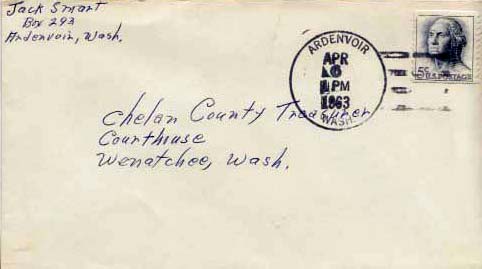 Jack Smart
Box 293
Ardenvoir, Wash.
ARDENVOIR
APR
PM
1963
WASH.
5¢ U.S. POSTAGE
Chelan County Treasurer
Courthouse
Wenatchee, Wash.